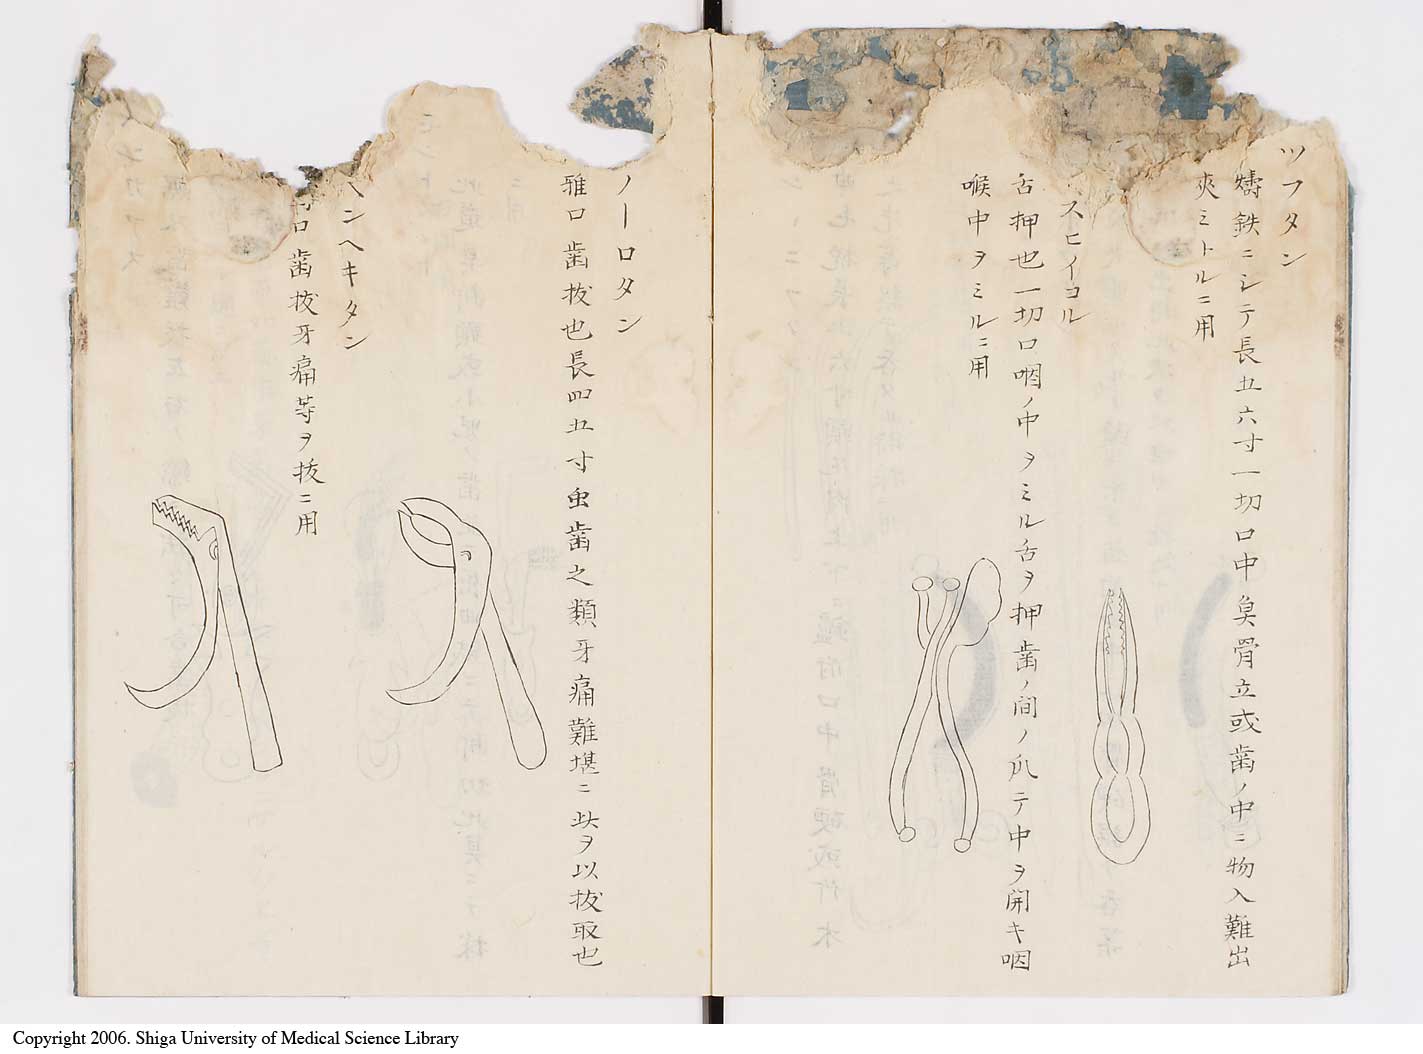 ツフタン
鑄鉄ニシテ長五六寸一切口中臭骨立或歯ノ中ニ物入難出
夾ミトルニ用
スヒイヨル
舌押也一切口咽ノ中ヲミル舌ヲ押歯ノ間ノ爪ニテ中ヲ開キ咽
喉中ヲミルニ用
ノーロタン
雅口歯抜也長四五寸虫歯之類牙痛難堪ニ此ヲ以抜取也
ヘンヘキタン
口歯抜牙痛等ヲ抜ニ用
Copyright 2006. Shiga University of Medical Science Library